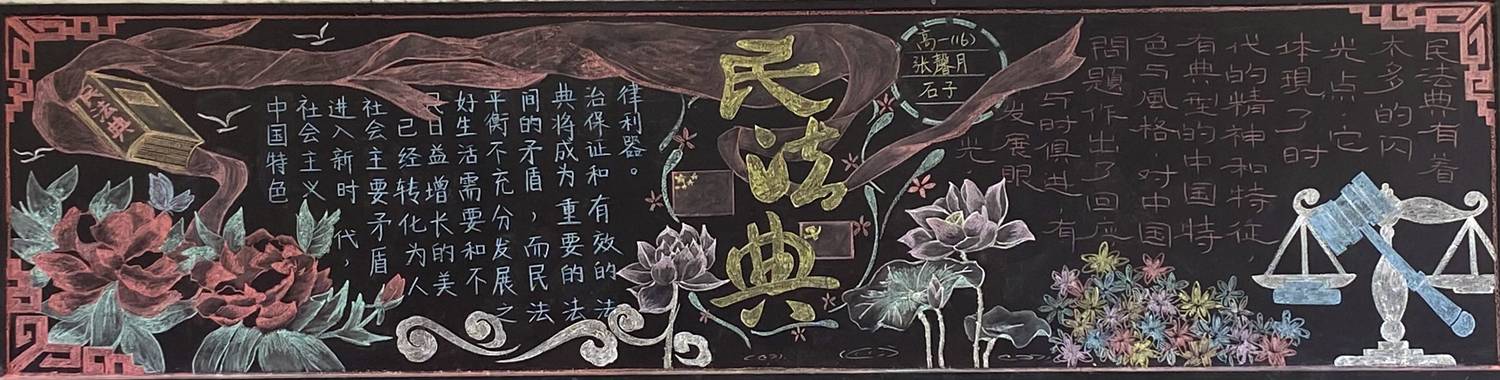 民法典
中国特色
社会主义
进入新时代，
社会主要矛盾
已经转化为人
民日益增长的美
好生活需要和不
平衡不充分发展之
间的矛盾，而民法
典将成为重要的法
治保证和有效的法
律利器。
民法典
高一(16)
张馨月
石子
民法典有着
多的闪
光点，它
体現了时
代的精神和特征，
有典型的中国特
色与風格，对中国
問題作出了回应
与时俱进 有
发展眼
光。